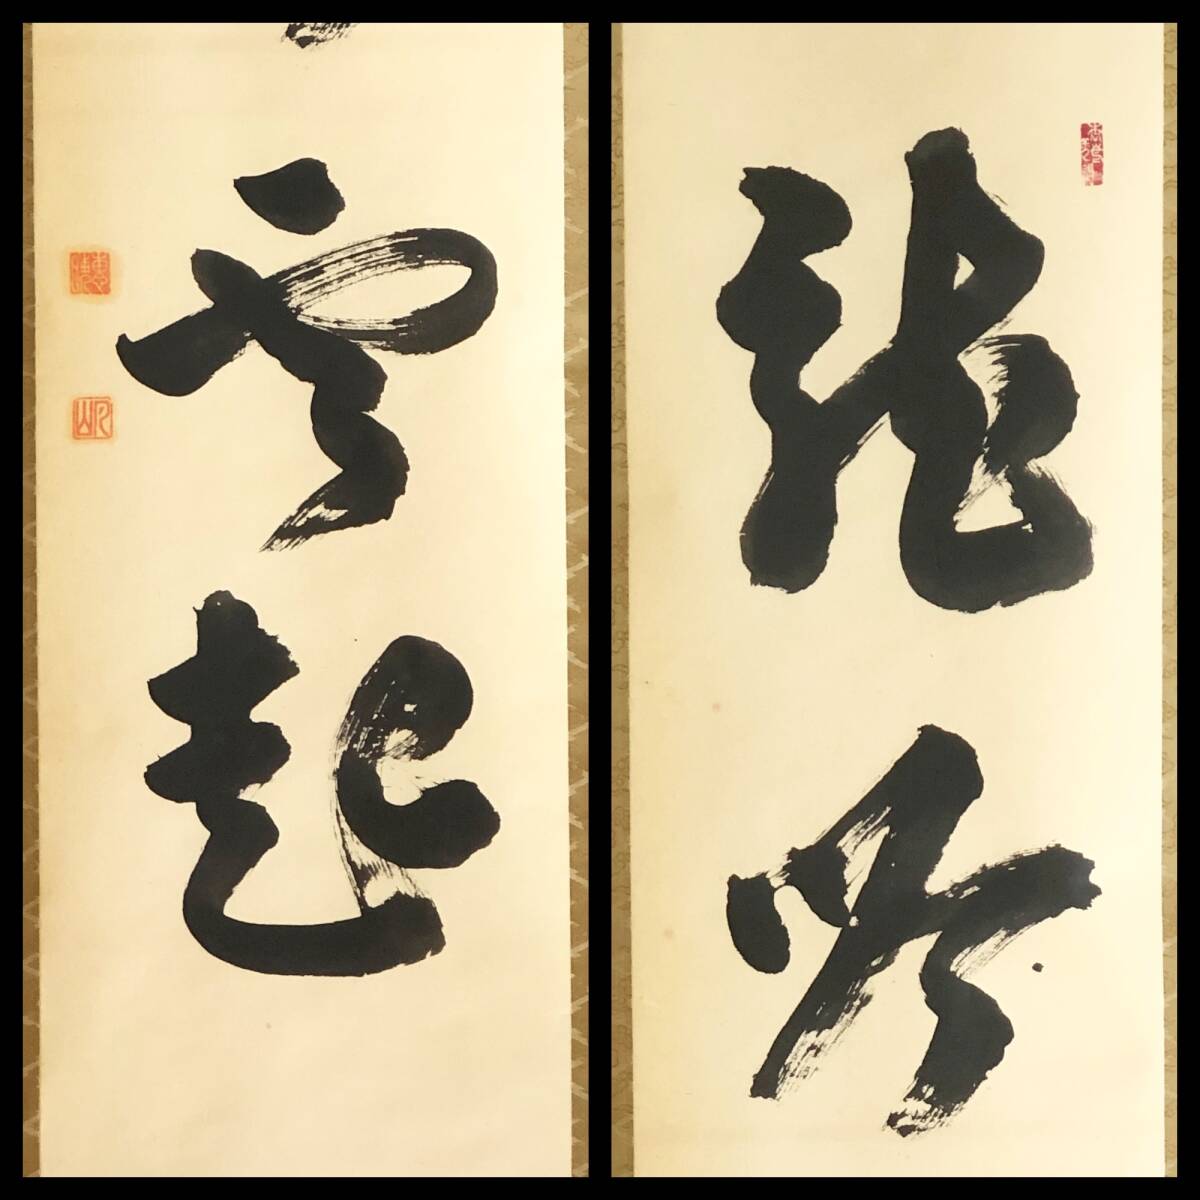 龍吟
雲起